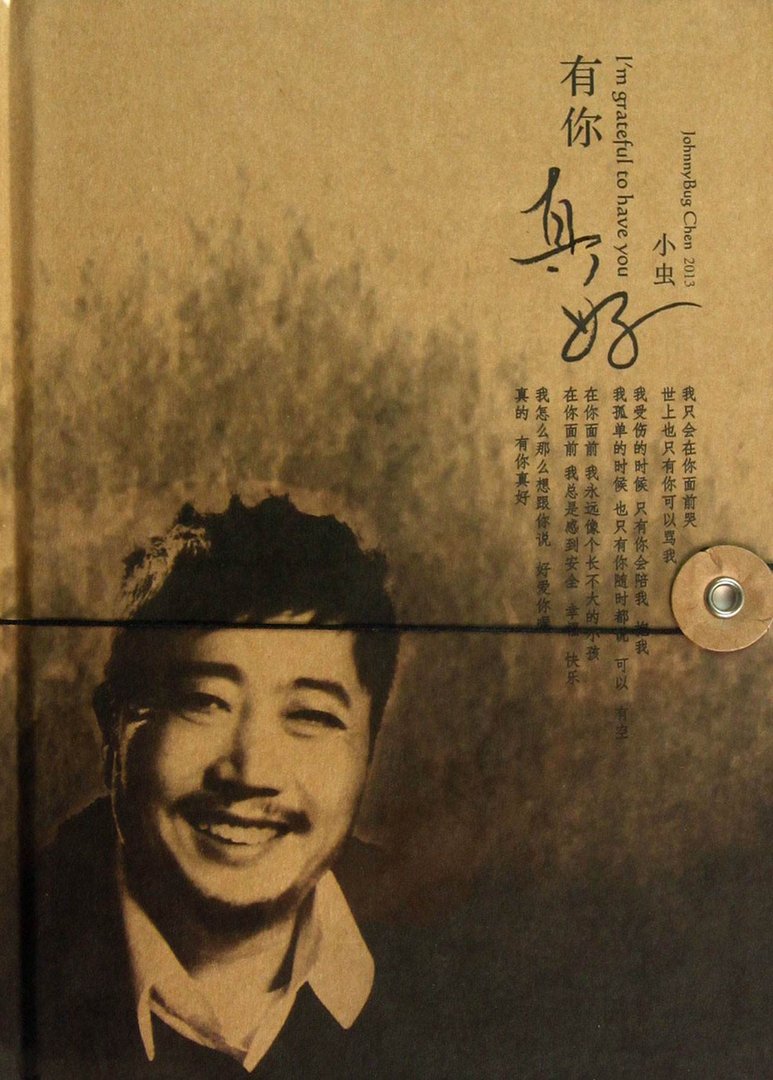 有你
真好
I'm grateful to have you
小虫
JohnnyBug Chen 2013
我只会在你面前哭
世上也只有你可以骂我
我受伤的时候 只有你会陪我 我
我孤单的时候 也只有你随时都说 可以 有空
在你面前 我永远像个长不大的小孩
在你面前 我总是感到安全 幸 快乐
我怎么那么想跟你说 好爱你
真的 有你真好